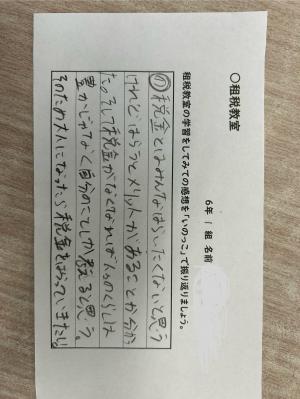 〇租税教室
6年 1組 名前
租税教室の学習をしてみての感想を「いのっこ」で振り返りましょう。
の税金とはみんなはらいたくないと思う
けれど、はらうとメリットがあることが分かっ
た。そして税金がなくなれば人のくらしは
豊かじゃなく自分のことしか考えると思う。
そのため大人になったら税金をはらっていきたい。